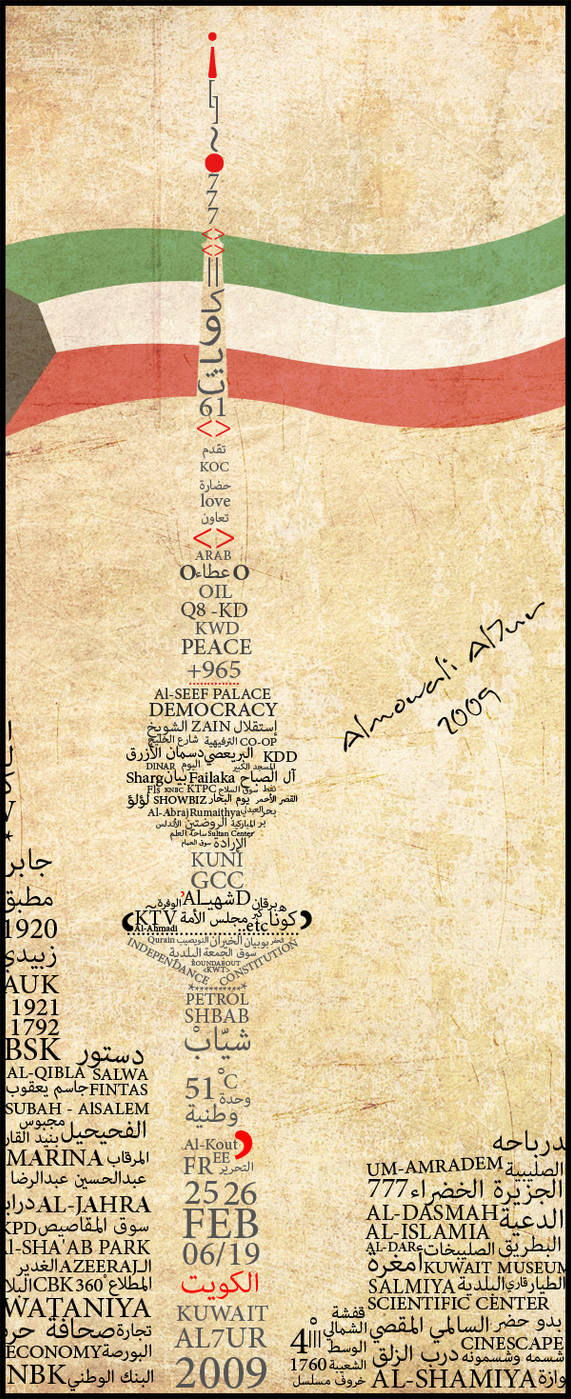 777
<>
<>
61
<>
تقدم
KOC
حضارة
love
تعاون
<>
ARAB
O عطاء O
OIL
Q8 -KD
KWD
PEACE
+965
Al-SEEF PALACE
DEMOCRACY
إستقلال ZAIN الشويخ
CO-OP الترفيهية شارع الخليج
KDD البريعصي دسمان الأزرق
DINAR اليوم المسجد الكبير
Sharg بيان Failaka آل الصباح
Fls KNBC KTPC سوق السلاح نفط
لؤلؤ SHOWBIZ يوم البحار القصر الأحمر
Al-Abraj Rumaithya
بر المباركية الروضتين الأندلس
ساحة العلم Sultan Center
الإرادة سوق الحمام
KUNI
GCC
الوفرة ALشهيد D برقان
KTV مجلس الأمة كبر كونا
Al-Ahmadi etc..
Qurain النويصيب الخيران بوبيان
سوق الجمعة البلدية
ROUNDABOUT
<KWT>
INDEPENDANCE CONSTITUTION
PETROL
SHBAB
شبّابْ
51°C
وحدة
وطنية
Al-Kout
FREE التحرير
25 26
FEB
06/19
الكويت
KUWAIT
AL7UR
2009
Almowali Al7ur
2009
جابر
مطبق
1920
زبيدي
AUK
1921
1792
BSK دستور
AL-QIBLA SALWA
جاسم يعقوب FINTAS
SUBAH - AlSALEM
مجبوس
بنيد القار الفحيحيل
MARINA المرقاب
عبدالحسين عبدالرضا
AL-JAHRA
KPD سوق المقاصيص
Al-SHA'AB PARK
الغدير AZEERAJـال
CBK 360° المطلاع
WATANIYA
صحافة حرة تجارة
ECONOMY البورصة
NBK البنك الوطني
بدرباحه
UM-AMRADEM الصليبية
777 الجزيرة الخضراء
AL-DASMAH الدعية
AL-ISLAMIA
AL-DAR الصليبخات البطريق
امغرة KUWAIT MUSEUM
SALMIYA البلدية قاري الطيار
SCIENTIFIC CENTER
قفشة
الشمالي السالمي المقصي بدو حضر
4 الوسط درب الزلق CINESCAPE
شسمه وشسمونه
1760 الشعيبة
خروف مسلسل AL-SHAMIYA